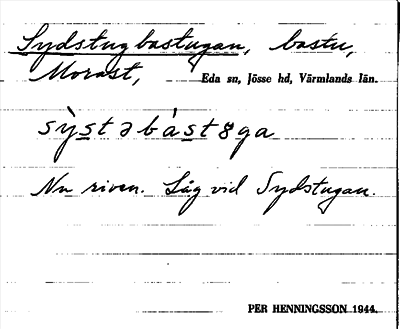 Sydstugbastugan, bastu,
Morast,
Eda sn, Jösse hd, Värmlands län.
sỳstəbástȣga
Nu riven. Låg vid Sydstugan.
PER HENNINGSSON 1944.